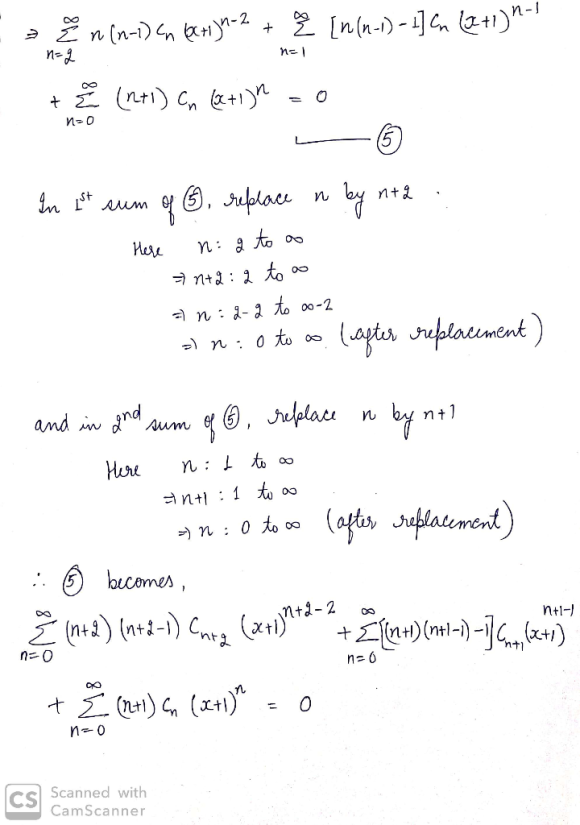 ⇒ ∞Σn=2 n(n-1) Cn (x+1)^n-2 + ∞Σn=1 [n(n-1) - 1] Cn (x+1)^n-1
+ ∞Σn=0 (n+1) Cn (x+1)^n = 0
⑤
In 1st sum of ⑤, replace n by n+2 .
Here n : 2 to ∞
⇒ n+2 : 2 to ∞
⇒ n : 2-2 to ∞-2
⇒ n : 0 to ∞ (after replacement)
and in 2nd sum of ⑤, replace n by n+1
Here n : 1 to ∞
⇒ n+1 : 1 to ∞
⇒ n : 0 to ∞ (after replacement)
∴ ⑤ becomes,
∞Σn=0 (n+2) (n+2-1) Cn+2 (x+1)^n+2-2 + ∞Σn=0 [(n+1)(n+1-1) -1] Cn+1 (x+1)^n+1-1
+ ∞Σn=0 (n+1) Cn (x+1)^n = 0
CS Scanned with
CamScanner